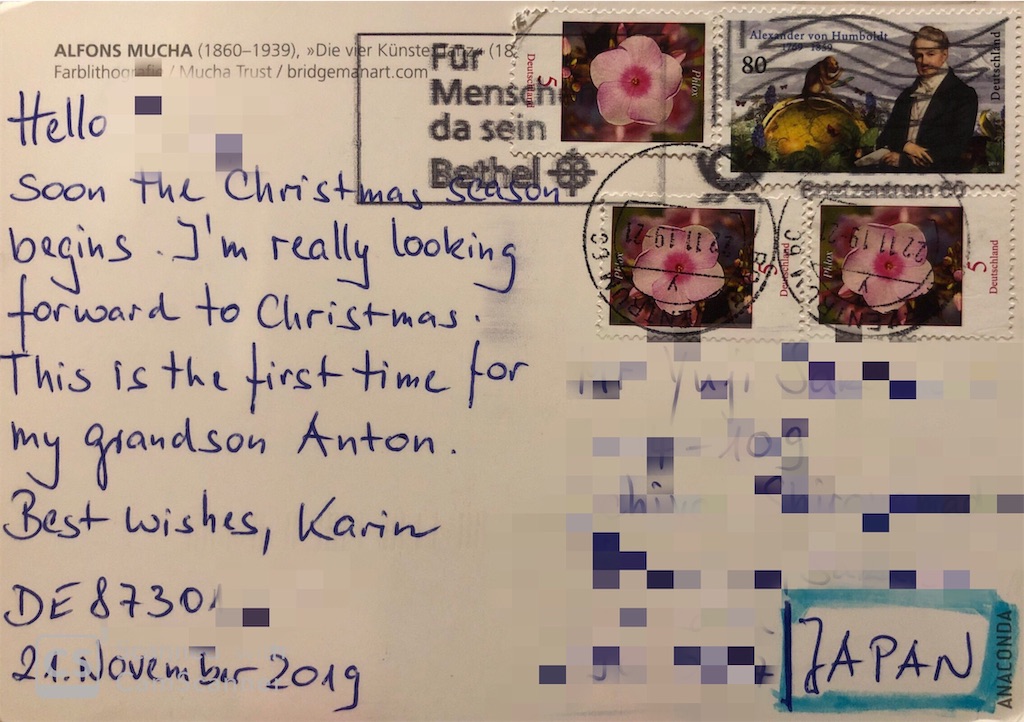 ALFONS MUCHA (1860–1939), »Die vier Künste: Tanz« (18
Farblithografie / Mucha Trust / bridgemanart.com
Hello
Soon the Christmas season
begins. I'm really looking
forward to Christmas.
This is the first time for
my grandson Anton.
Best wishes, Karin
DE 8730
21. November 2019
Für
Menschen
da sein
Bethel
Deutschland
5
Phlox
Alexander von Humboldt
1769–1859
80
Deutschland
Briefzentrum
22.11.19-21
5
Deutschland
Phlox
22.11.19-2
5
Deutschland
Phlox
JAPAN
ANACONDA